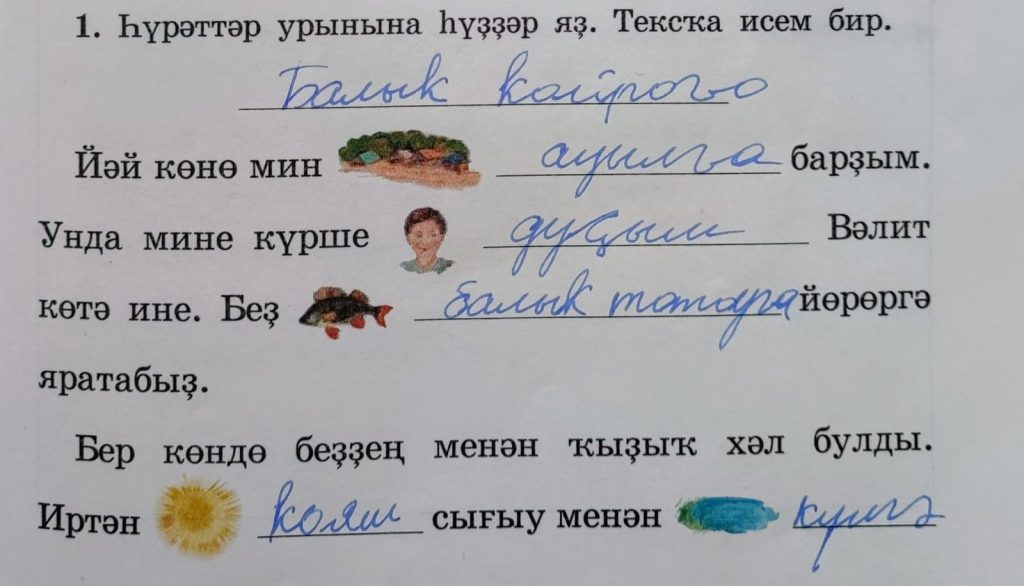 1. Һүрәттәр урынына һүҙҙәр яҙ. Текска исем бир.
Балык койрого
Йәй көнө мин ауылга барҙым.
Унда мине күрше дуҫым Вәлит
көтә ине. Беҙ балык тотарга йөрөргә
яратабыҙ.
Бер көндө беҙҙең менән ҡыҙыҡ хәл булды.
Иртән кояш сығыу менән күлгә